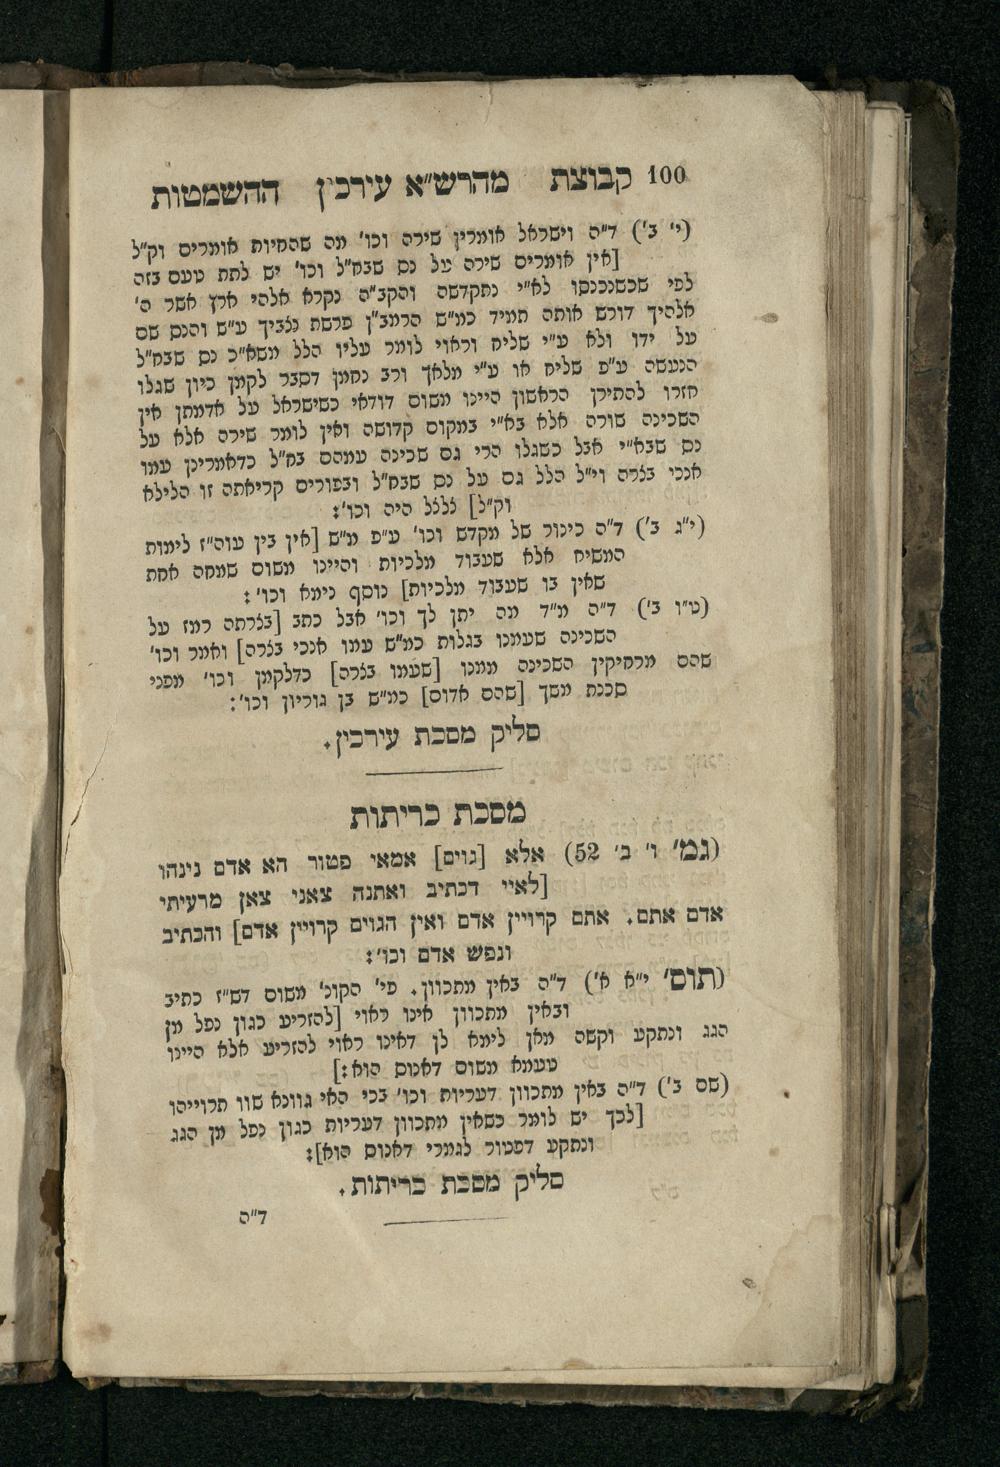 100 קבוצת מהרש״א עירכין ההשמטות
(י׳ ב׳) ד״ה וישראל אומרין שירה וכו׳ מה שהחיות אומרים וק״ל
[אין אומרים שירה על נס שבח״ל וכו׳ יש לתת טעם בזה
לפי שכשנכנסו לא״י נתקדשה והקב״ה נקרא אלהי ארץ אשר ה׳
אלהיך דורש אותה תמיד כמ״ש הרמב״ן פרשת נצבין ע״ש והנס שם
על ידו ולא ע״י שליח וראוי לומר עליו הלל משא״כ נס שבח״ל
הנעשה ע״פ שליח או ע״י מלאך ורב נחמן דסבר לקמן כיון שגלו
חזרו להתירן הראשון היינו משום דודאי כשישראל על אדמתן אין
השכינה שורה אלא בא״י במקום קדושה ואין לומר שירה אלא על
נס שבא״י אבל כשגלו הרי גם שכינה עמהם בח״ל כדאמרינן עמו
אנכי בצרה וי״ל הלל גם על נס שבח״ל ובפורים קריאתה זו הלילא
וק״ל] צלצל היה וכו׳:
(י״ג ב׳) ד״ה כינור של מקדש וכו׳ ע״פ מ״ש [אין בין עוה״ז לימות
המשיח אלא שעבוד מלכיות והיינו משום שמחה אחת
שאין בו שעבוד מלכיות] נוסף נימא וכו׳:
(ט״ו ב׳) ד״ה מ״ד מה יתן לך וכו׳ אבל כתב [בצרתה רמז על
השכינה שעמנו בגלות כמ״ש עמו אנכי בצרה] ואמר וכו׳
שהם מרחיקין השכינה ממנו [שעמו בצרה] כדלקמן וכו׳ מפני
סכנת נשך [שהם אדום] כמ״ש בן גוריון וכו׳:
סליק מסכת עירכין.
מסכת כריתות
(גמ׳ ו׳ ב׳ 52) אלא [גוים] אמאי פטור הא אדם נינהו
[לאיי דכתיב ואתנה צאני צאן מרעיתי
אדם אתם. אתם קרויין אדם ואין הגוים קרויין אדם] והכתיב
ונפש אדם וכו׳:
(תוס׳ י״א א׳) ד״ה באין מתכוון. פי׳ הקונ׳ משום דש״ז כתיב
ובאין מתכוון אינו ראוי [להזריע כגון נפל מן
הגג ונתקע וקשה מאן לימא לן דאינו ראוי להזריע אלא היינו
טעמא משום דאנוס הוא:]
(שם ב׳) ד״ה באין מתכוון דעריות וכו׳ בכי האי גוונא שוו תרוייהו
[לכך יש לומר כשאין מתכוון דעריות כגון נפל מן הגג
ונתקע דפטור לגמרי דאנוס הוא]:
סליק מסכת כריתות.
ד״ה